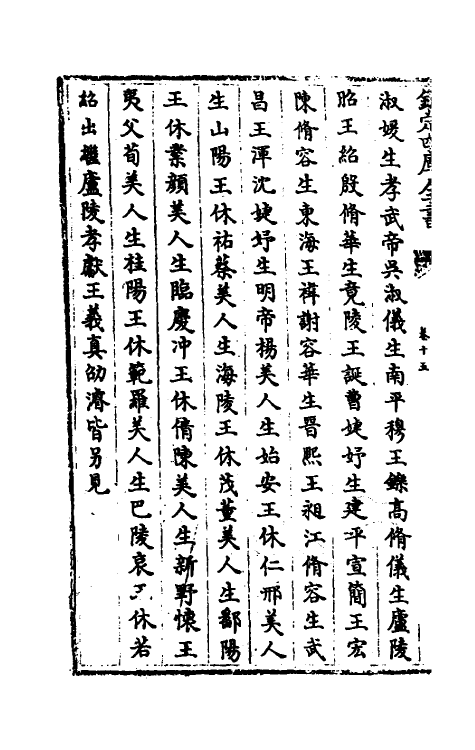 欽定四庫全書
卷十五
淑媛生孝武帝吳淑儀生南平穆王鑠高脩儀生廬陵
昭王紹殷脩華生竟陵王誕曹婕妤生建平宣簡王宏
陳脩容生東海王褘謝容華生晉熙王昶江脩容生武
昌王渾沈婕妤生明帝楊美人生始安王休仁邢美人
生山陽王休祐蔡美人生海陵王休茂董美人生鄱陽
王休業顔美人生臨慶沖王休倩陳美人生新野懷王
夷父荀美人生桂陽王休範羅美人生巴陵哀王休若
紹出繼廬陵孝獻王義真劭濬皆另見